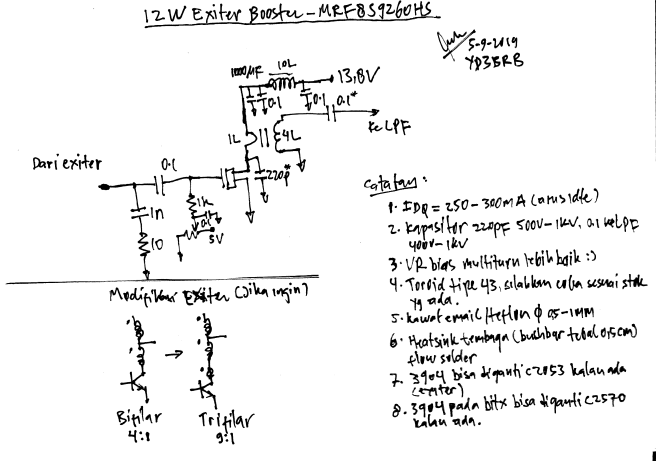 12W Exiter Booster - MRF8S9260HS
5-9-2019
YD3BRB
1000µF
10L
13,8V
0.1
0.1
0.1*
Ke LPF
1L
4L
Dari exiter
0.1
220p*
1n
1k
0.1
5V
10
Modifikasi Exiter (Jika ingin)
Bifilar
4:1
Trifilar
9:1
Catatan:
1. IDQ = 250-300mA (arus idle)
2. Kapasitor 220pF 500V-1KV, 0.1 ke LPF
400V-1KV
3. VR bias multiturn lebih baik :)
4. Toroid tipe 43, silahkan coba sesuai stok
yg ada.
5. Kawat email/teflon ϕ 0,5-1MM
6. Heatsink tembaga (bushbar tebal 0,5cm)
flow solder
7. 3904 bisa diganti C2053 kalau ada
(exiter)
8. 3904 pada bitx bisa diganti C2570
kalau ada.